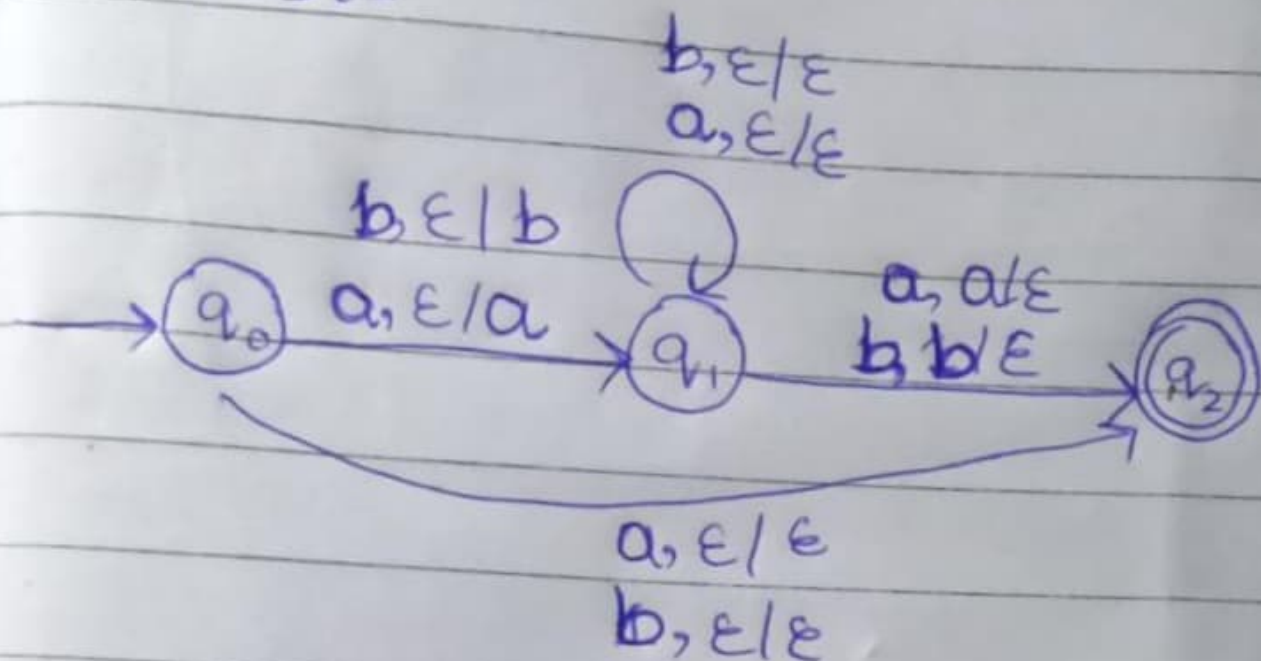 b, ε/ε
a, ε/ε
b, ε/b
a, ε/a
a, a/ε
b, b/ε
q₀
q₁
q₂
a, ε/ε
b, ε/ε